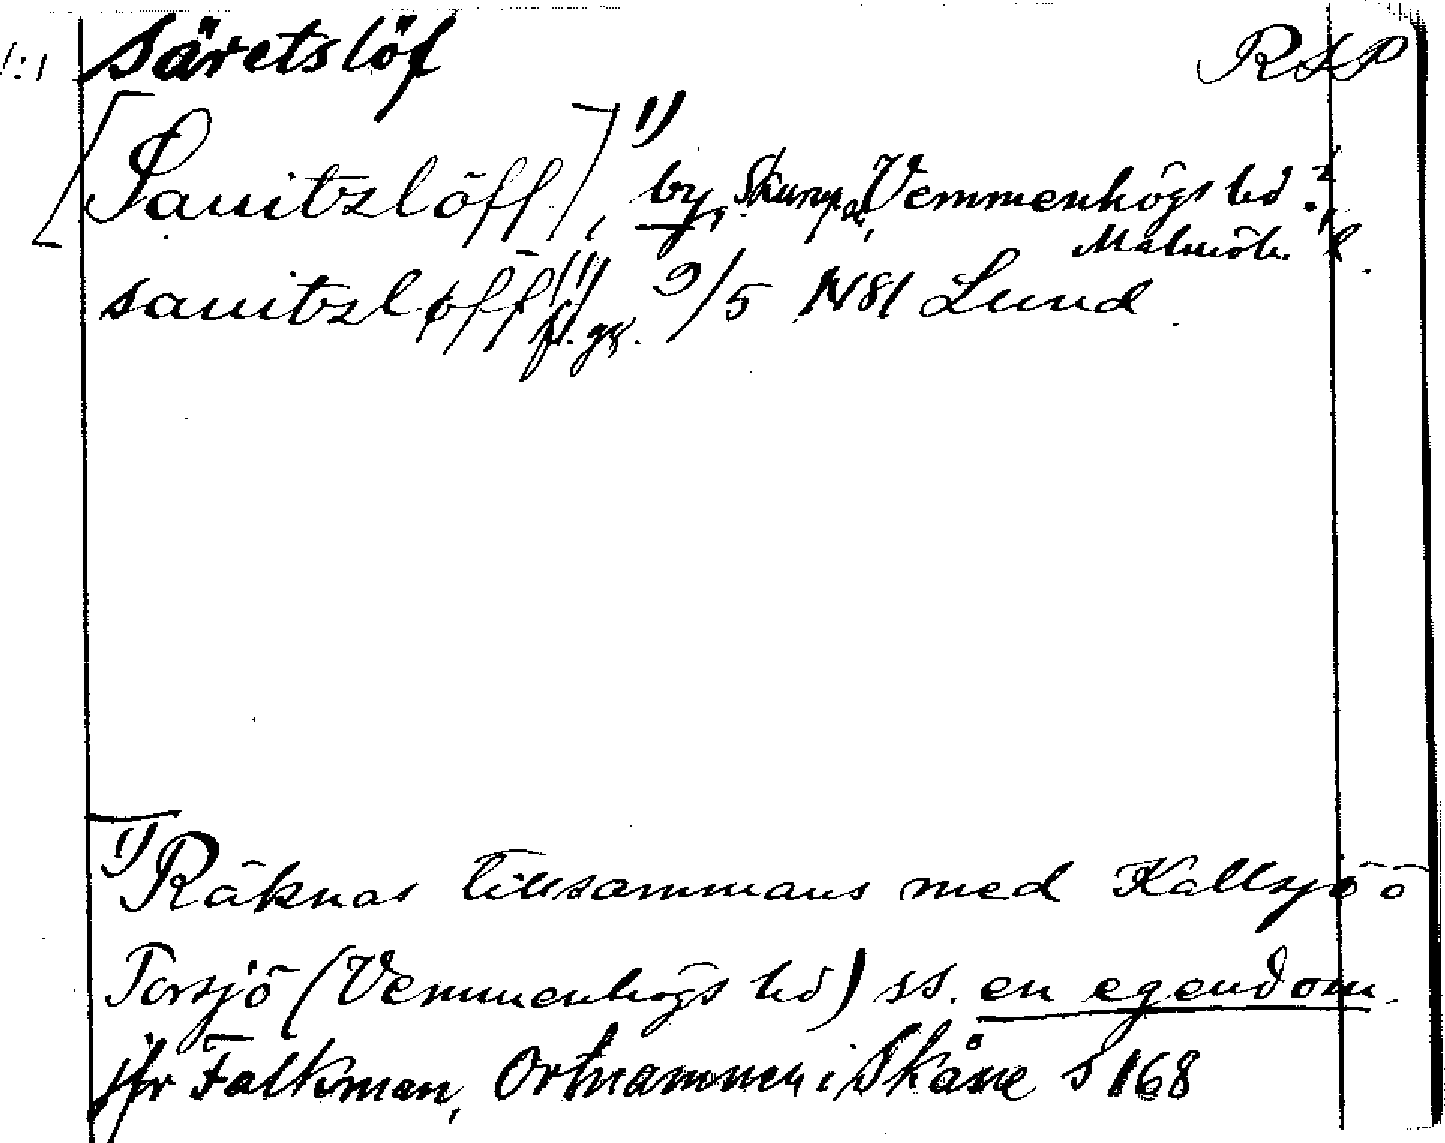 1:1 säretslöf RSP
[Sauitzlöff]¹⁾, by, Skurups, Vemmenhögs hd ?,
Malmöh. l.
sauitzløff¹⁾ fl. gg. 9/5 1481 Lund
¹⁾ Räknas tillsammans med Kallsjö o
Torsjö (Vemmenhögs hd) ss. en egendom.
jfr Falkman, Ortnamnen i Skåne s 168